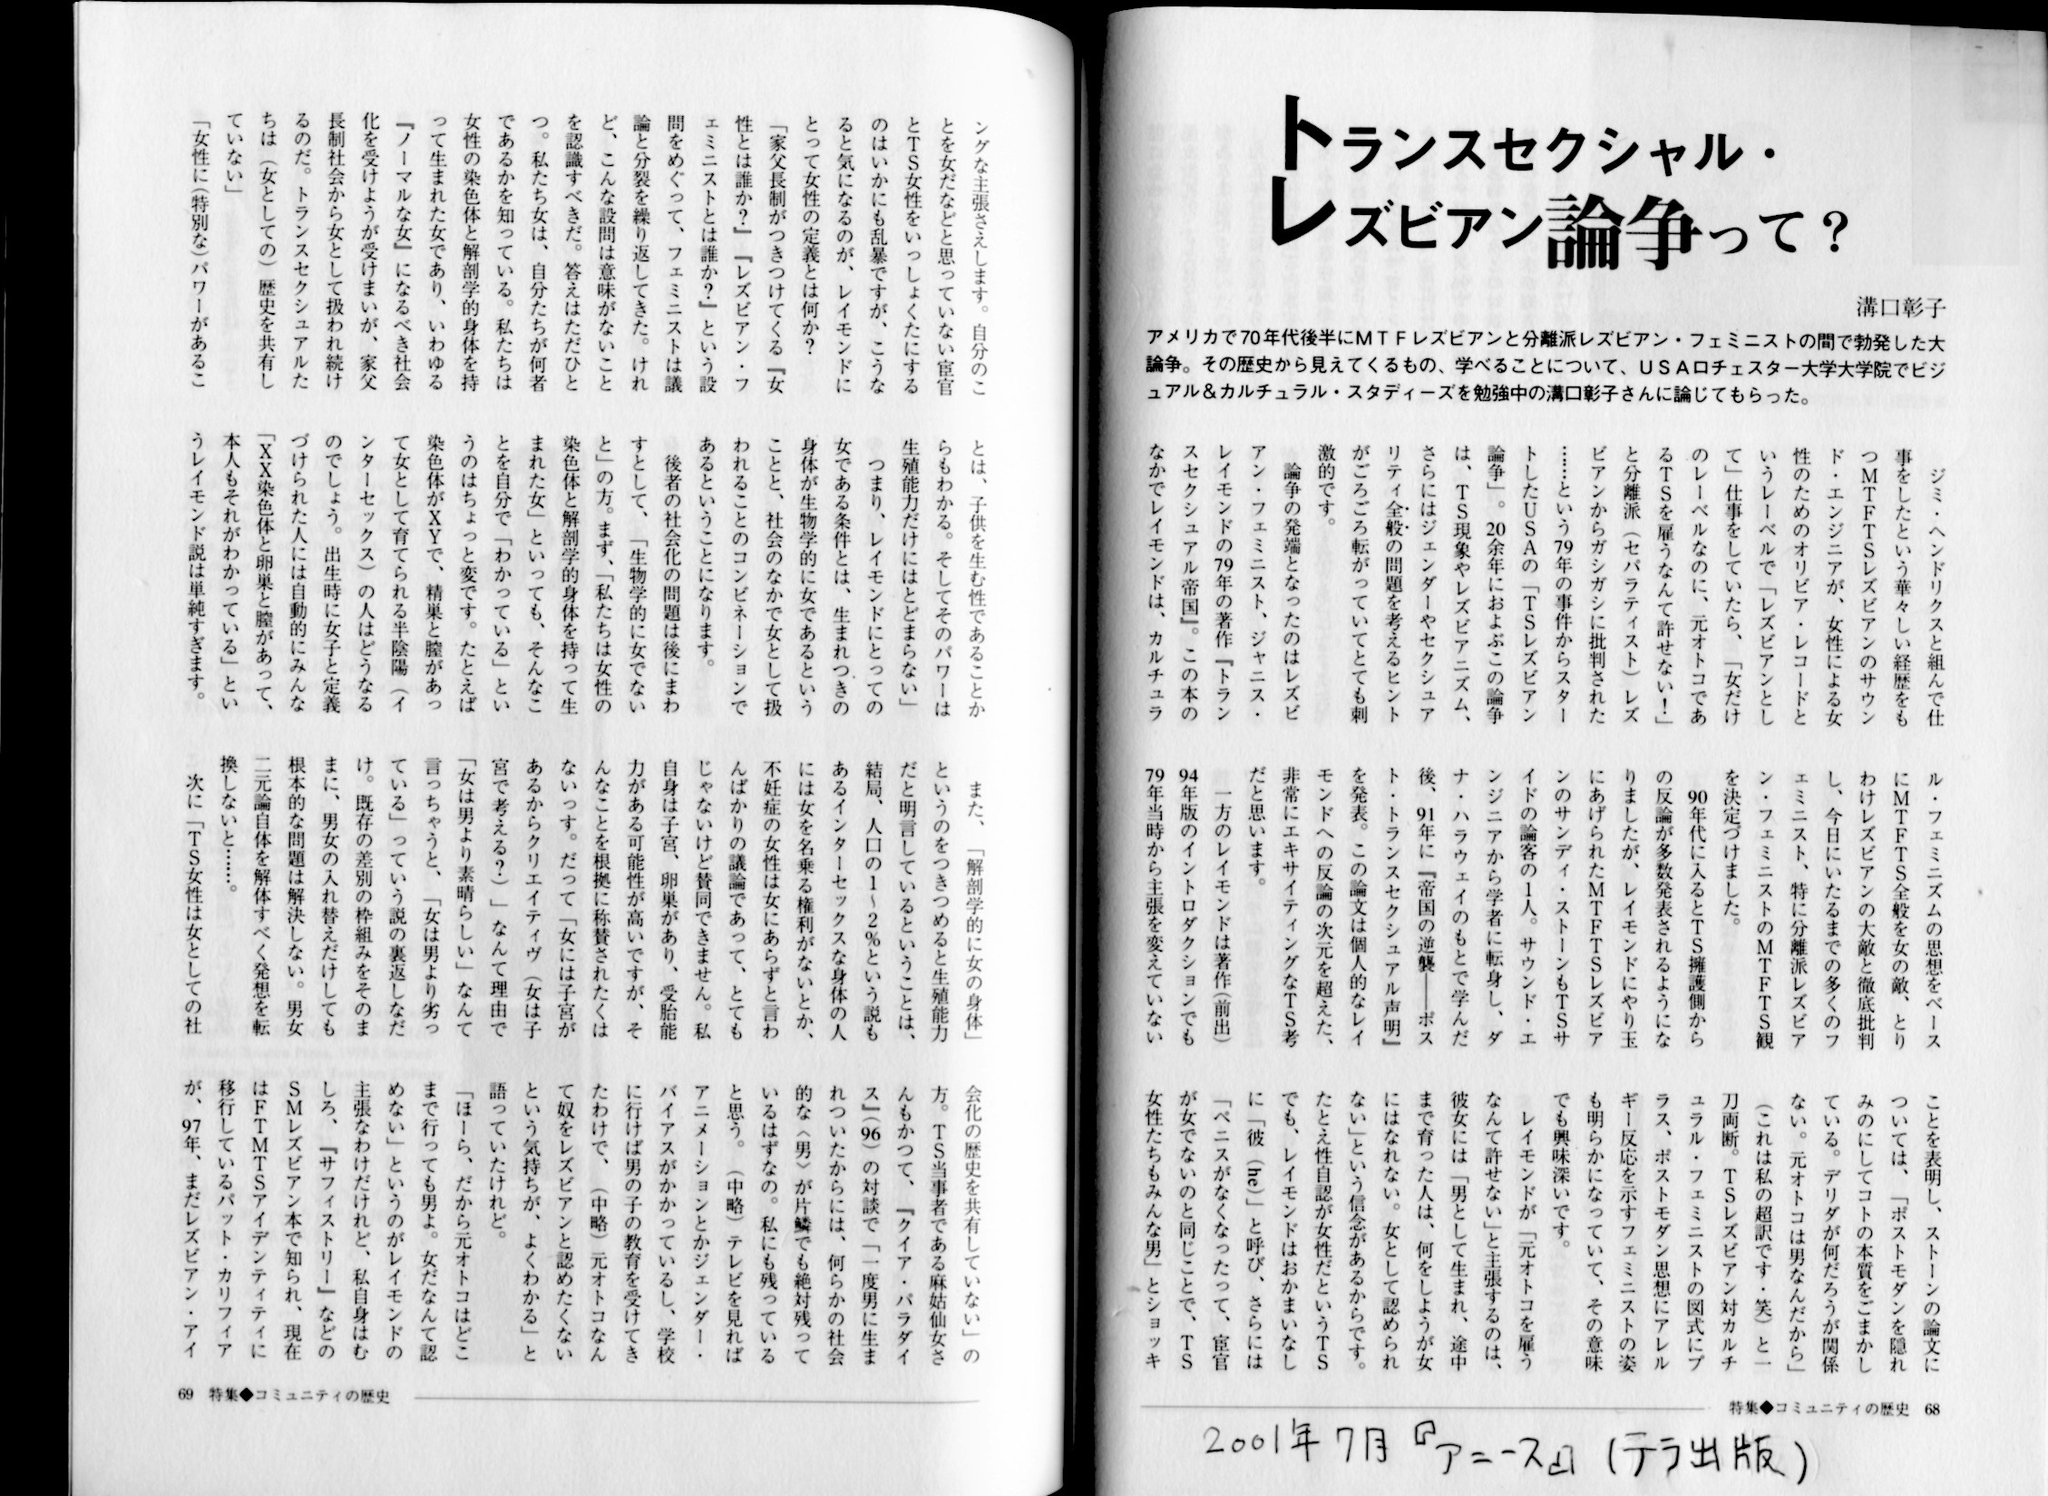 トランスセクシャル・
レズビアン論争って?
溝口彰子
アメリカで70年代後半にMTFレズビアンと分離派レズビアン・フェミニストの間で勃発した大
論争。その歴史から見えてくるもの、学べることについて、USAロチェスター大学大学院でビジ
ュアル&カルチュラル・スタディーズを勉強中の溝口彰子さんに論じてもらった。
ジミ・ヘンドリクスと組んで仕
事をしたという華々しい経歴をも
つMTFTSレズビアンのサウン
ド・エンジニアが、女性による女
性のためのオリビア・レコードと
いうレーベルで「レズビアンとし
て」仕事をしていたら、「女だけ
のレーベルなのに、元オトコであ
るTSを雇うなんて許せない!」
と分離派(セパラティスト)レズ
ビアンからガシガシに批判された
……という79年の事件からスター
トしたUSAの「TSレズビアン
論争」。20余年におよぶこの論争
は、TS現象やレズビアニズム、
さらにはジェンダーやセクシュア
リティ全般の問題を考えるヒント
がごろごろ転がっていてとても刺
激的です。
論争の発端となったのはレズビ
アン・フェミニスト、ジャニス・
レイモンドの79年の著作『トラン
スセクシュアル帝国』。この本の
なかでレイモンドは、カルチュラ
ル・フェミニズムの思想をベース
にMTFTS全般を女の敵、とり
わけレズビアンの大敵と徹底批判
し、今日にいたるまでの多くのフ
ェミニスト、特に分離派レズビア
ン・フェミニストのMTFTS観
を決定づけました。
90年代に入るとTS擁護側から
の反論が多数発表されるようにな
りましたが、レイモンドにやり玉
にあげられたMTFTSレズビア
ンのサンディ・ストーンもTSサ
イドの論客の1人。サウンド・エ
ンジニアから学者に転身し、ダ
ナ・ハラウェイのもとで学んだ
後、91年に『帝国の逆襲――ポス
ト・トランスセクシュアル声明』
を発表。この論文は個人的なレイ
モンドへの反論の次元を超えた、
非常にエキサイティングなTS考
だと思います。
一方のレイモンドは著作(前出)
94年版のイントロダクションでも
79年当時から主張を変えていない
ことを表明し、ストーンの論文に
ついては、「ポストモダンを隠れ
みのにしてコトの本質をごまかし
ている。デリダが何だろうが関係
ない。元オトコは男なんだから」
(これは私の超訳です・笑)と一
刀両断。TSレズビアン対カルチ
ュラル・フェミニストの図式にプ
ラス、ポストモダン思想にアレル
ギー反応を示すフェミニストの姿
も明らかになっていて、その意味
でも興味深いです。
レイモンドが「元オトコを雇う
なんて許せない」と主張するのは、
彼女には「男として生まれ、途中
まで育った人は、何をしようが女
にはなれない。女として認められ
ない」という信念があるからです。
たとえ性自認が女性だというTS
でも、レイモンドはおかまいなし
に「彼(he)」と呼び、さらには
「ペニスがなくなったって、宦官
が女でないのと同じことで、TS
女性たちもみんな男」とショッキ
特集◆コミュニティの歴史 68
2001年7月『アニース』(テラ出版)
ングな主張さえします。自分のこ
とを女だなどと思っていない宦官
とTS女性をいっしょくたにする
のはいかにも乱暴ですが、こうな
ると気になるのが、レイモンドに
とって女性の定義とは何か?
「家父長制がつきつけてくる『女
性とは誰か?』『レズビアン・フ
ェミニストとは誰か?』という設
問をめぐって、フェミニストは議
論と分裂を繰り返してきた。けれ
ど、こんな設問は意味がないこと
を認識すべきだ。答えはただひと
つ。私たち女は、自分たちが何者
であるかを知っている。私たちは
女性の染色体と解剖学的身体を持
って生まれた女であり、いわゆる
『ノーマルな女』になるべき社会
化を受けようが受けまいが、家父
長制社会から女として扱われ続け
るのだ。トランスセクシュアルた
ちは(女としての)歴史を共有し
ていない」
「女性に(特別な)パワーがあるこ
とは、子供を生む性であることか
らもわかる。そしてそのパワーは
生殖能力だけにはとどまらない」
つまり、レイモンドにとっての
女である条件とは、生まれつきの
身体が生物学的に女であるという
ことと、社会のなかで女として扱
われることのコンビネーションで
あるということになります。
後者の社会化の問題は後にまわ
すとして、「生物学的に女でない
と」の方。まず、「私たちは女性の
染色体と解剖学的身体を持って生
まれた女」といっても、そんなこ
とを自分で「わかっている」とい
うのはちょっと変です。たとえば
染色体がXYで、精巣と膣があっ
て女として育てられる半陰陽(イ
ンターセックス)の人はどうなる
のでしょう。出生時に女子と定義
づけられた人には自動的にみんな
「XX染色体と卵巣と膣があって、
本人もそれがわかっている」とい
うレイモンド説は単純すぎます。
また、「解剖学的に女の身体」
というのをつきつめると生殖能力
だと明言しているということは、
結局、人口の1〜2%という説も
あるインターセックスな身体の人
には女を名乗る権利がないとか、
不妊症の女性は女にあらずと言わ
んばかりの議論であって、とても
じゃないけど賛同できません。私
自身は子宮、卵巣があり、受胎能
力がある可能性が高いですが、そ
んなことを根拠に称賛されたくは
ないっす。だって「女には子宮が
あるからクリエイティヴ(女は子
宮で考える?)」なんて理由で
「女は男より素晴らしい」なんて
言っちゃうと、「女は男より劣っ
ている」っていう説の裏返しなだ
け。既存の差別の枠組みをそのま
まに、男女の入れ替えだけしても
根本的な問題は解決しない。男女
二元論自体を解体すべく発想を転
換しないと……。
次に「TS女性は女としての社
会化の歴史を共有していない」の
方。TS当事者である麻姑仙女さ
んもかつて、『クイア・パラダイ
ス』(96)の対談で「一度男に生ま
れついたからには、何らかの社会
的な〈男〉が片鱗でも絶対残って
いるはずなの。私にも残っている
と思う。(中略)テレビを見れば
アニメーションとかジェンダー・
バイアスがかかっているし、学校
に行けば男の子の教育を受けてき
たわけで、(中略)元オトコなん
て奴をレズビアンと認めたくない
という気持ちが、よくわかる」と
語っていたけれど。
「ほーら、だから元オトコはどこ
まで行っても男よ。女だなんて認
めない」というのがレイモンドの
主張なわけだけれど、私自身はむ
しろ、『サフィストリー』などの
SMレズビアン本で知られ、現在
はFTMTSアイデンティティに
移行しているパット・カリフィア
が、97年、まだレズビアン・アイ
69 特集◆コミュニティの歴史